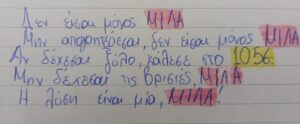 Δεν είσαι μόνος ΜΙΛΑ
Μην απογοητεύεσαι, δεν είσαι μόνος ΜΙΛΑ
Αν δέχεσαι ξύλο, κάλεσε στο 1056.
Μην δέχεσαι τις βρισιές, ΜΙΛΑ
Η λύση είναι μία, ΜΙΛΑ!